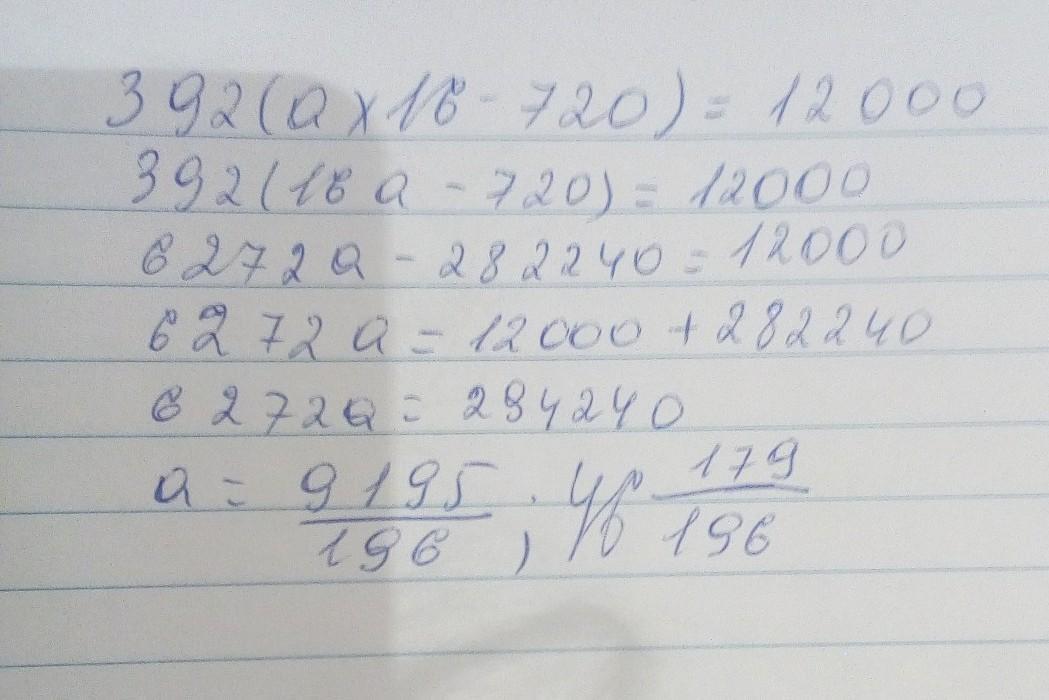 392(a×16-720)=12000
392(16a-720)=12000
6272a-282240=12000
6272a=12000+282240
6272a=294240
a=9195/196, 179/196